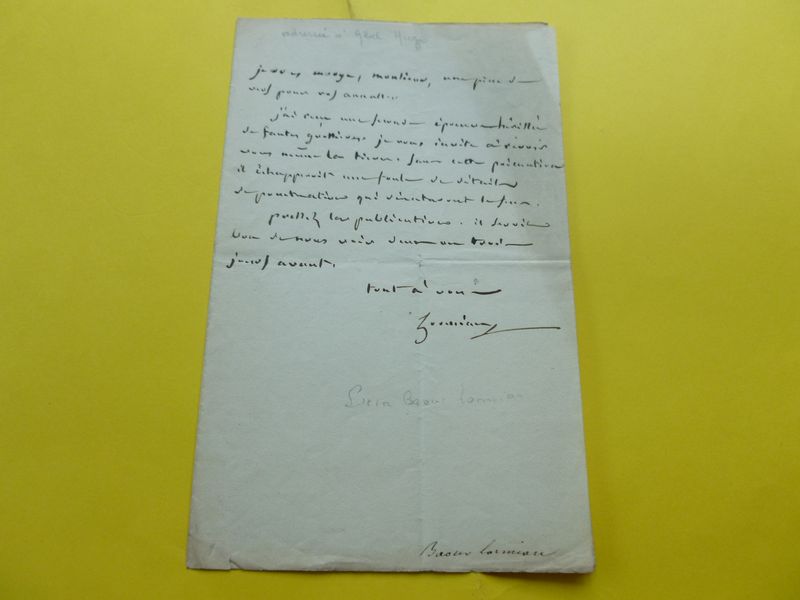 adressé à Abel Hugo
je vous envoye, monsieur, une piece de
vers pour vos annales.
j'ai reçu une seconde épreuve hérissée
de fautes grossières, je vous invite à revoir
vous même la tierce. sans cette précaution
il échapperoit une foule de détails
de ponctuation qui dénatureroit le sens.
pressez la publication. il seroit
bon de nous voir deux ou trois
jours avant.
tout à vous
Lormian
Baour Lormian
Baour Lormian